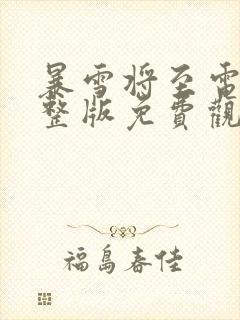 暴雪将至電
整版免費觀
福島春佳